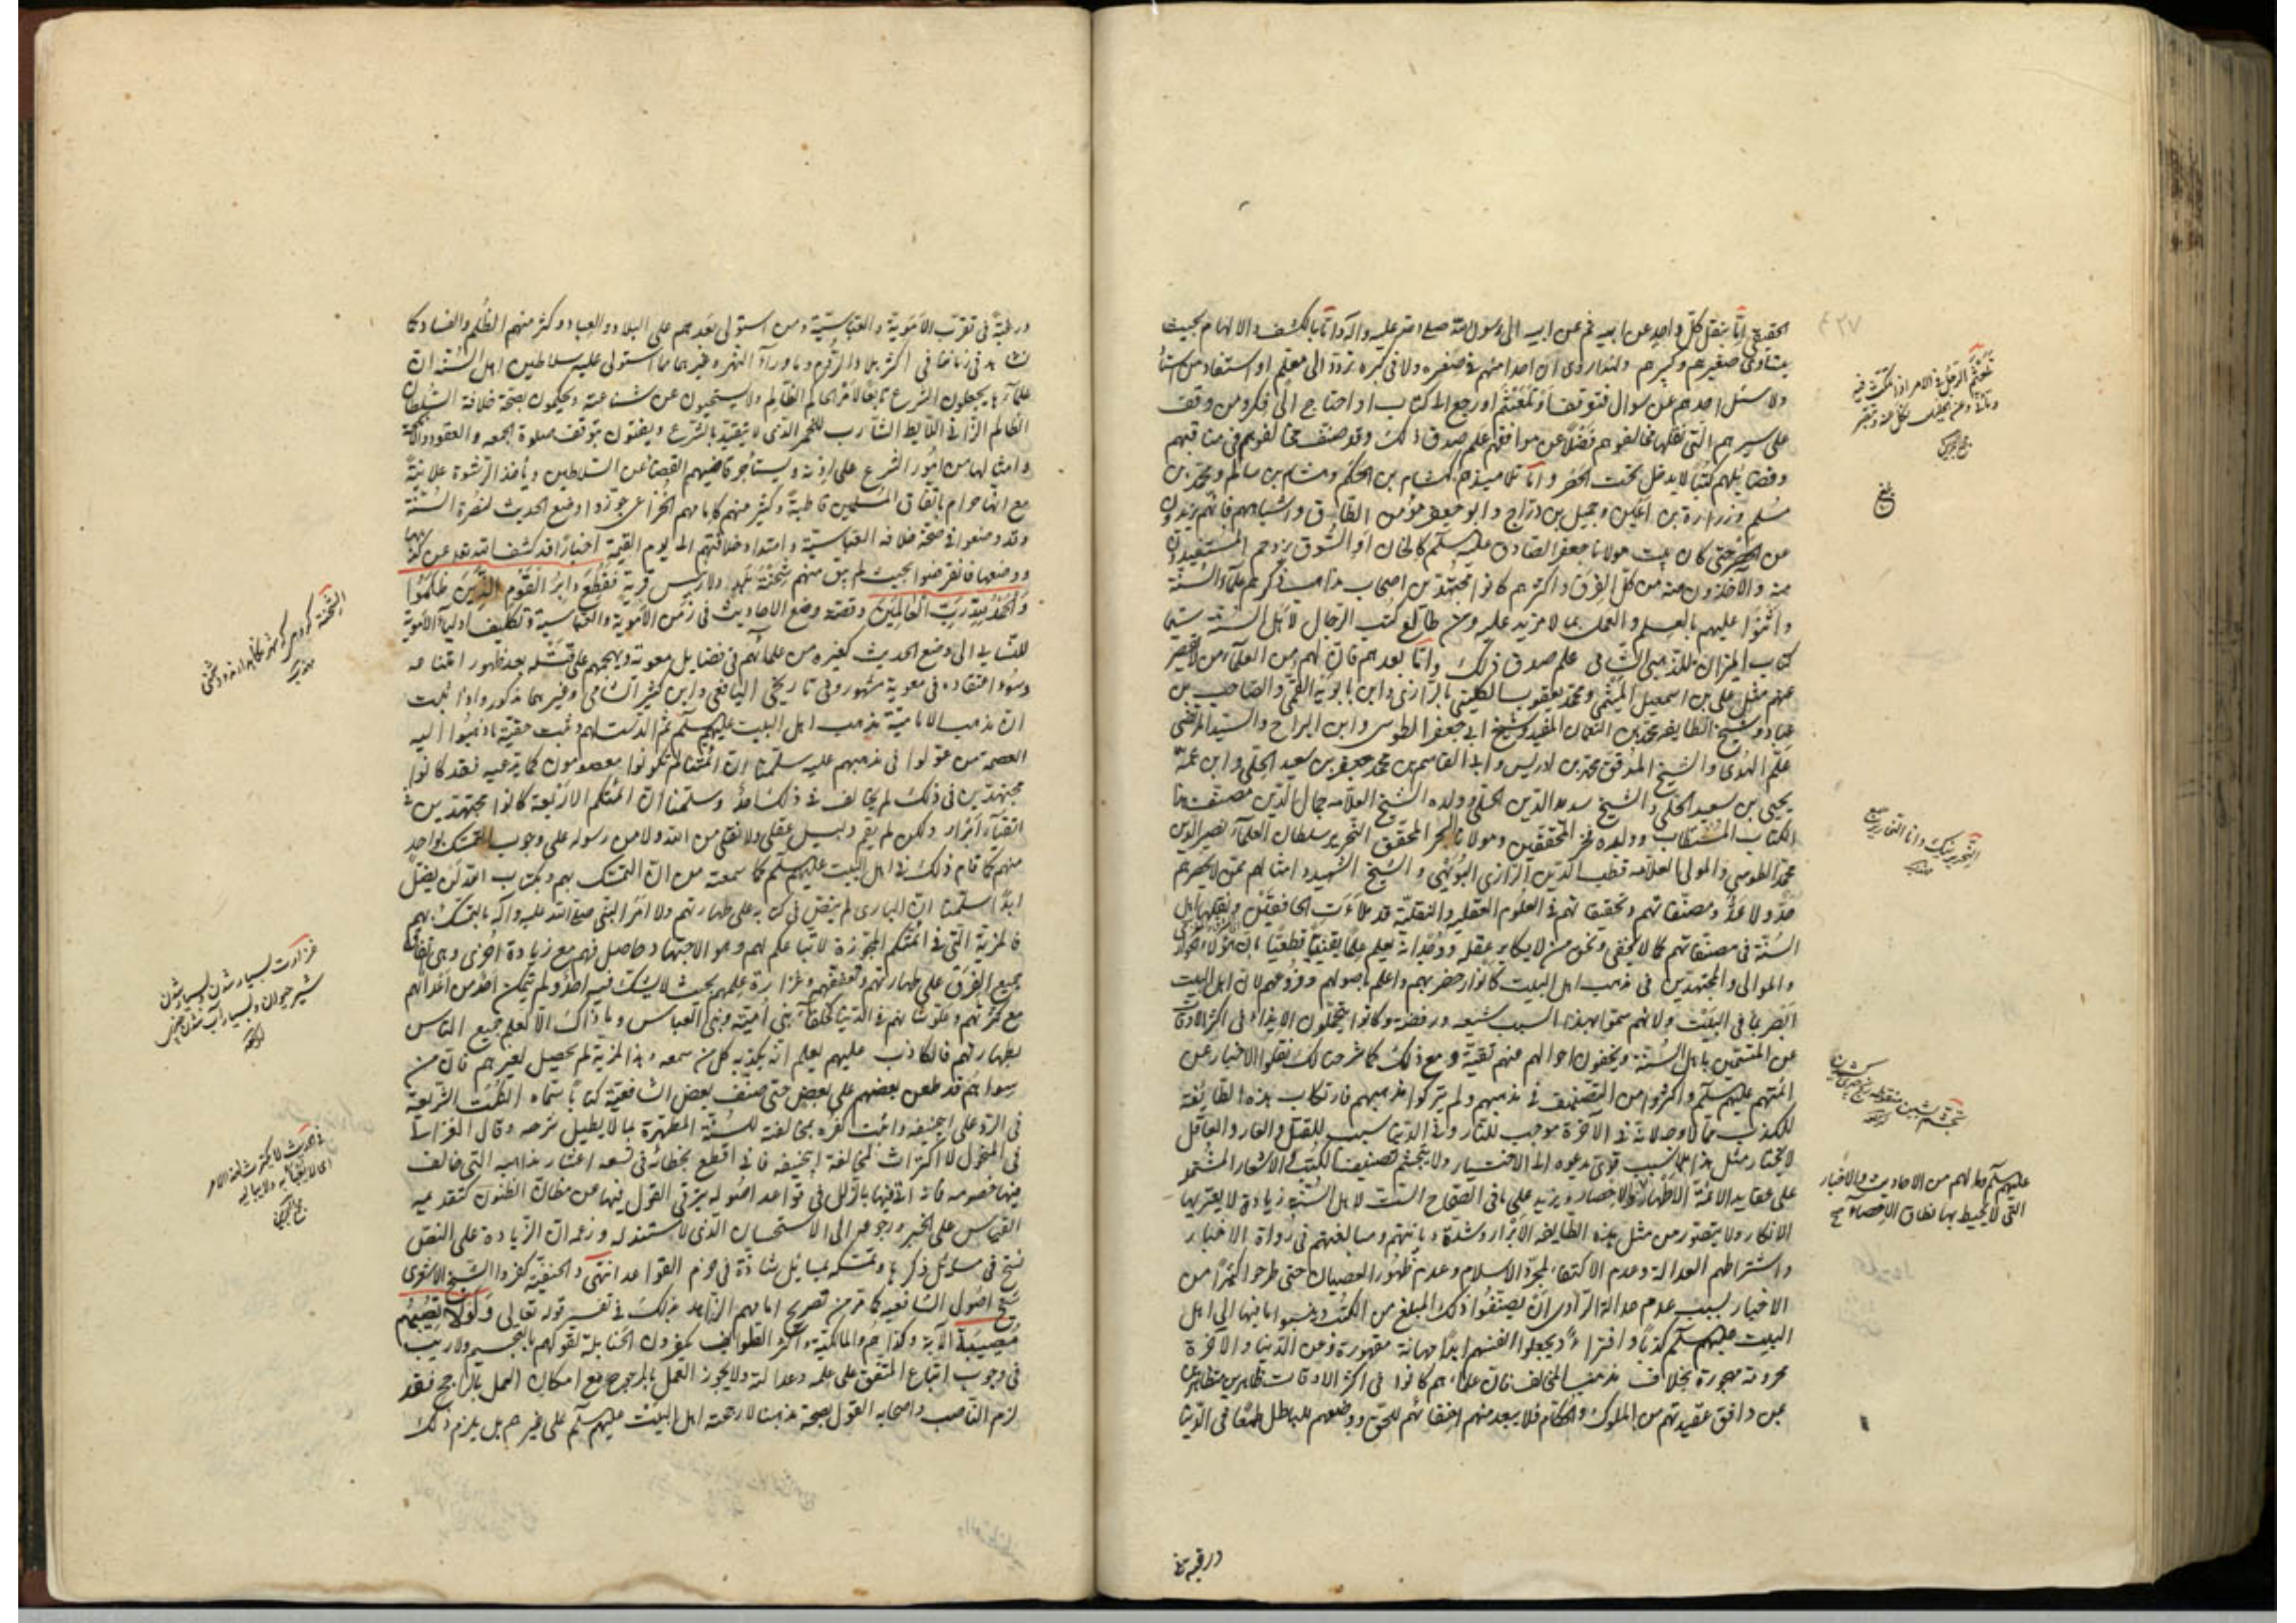 الحقيقي اما بنقل كل واحد عن ابيه ثم عن ابيه الى رسول الله صلى الله عليه وآله واما بالكشف والالهام بحيث
يتساوى صغيرهم وكبيرهم ولهذا روى ان احدا منهم في صغره ولا في كبره تردد الى معلم او استفاد من استاد
ولا سئل احدهم عن سوال فتوقف او تلعثم او رجع الى كتاب او احتاج الى فكر ومن وقف
على سيرهم التى نقلها مخالفوهم فضلا عن موافقهم علم صدق ذلك وقد صنف مخالفوهم في مناقبهم
وفضايلهم كتبا لا يدخل تحت الحصر واما تلاميذهم كهشام بن الحكم وهشام بن سالم ومحمد بن
مسلم وزرارة بن اعين وجميل بن دراج وابو جعفر مؤمن الطاق واشباههم فانهم يزيدون
عن الحصر حتى كان بيت مولانا جعفر الصادق عليه سلم كالخان او السوق يزدحم المستفيدون
منه والآخذون منه من كل الفرق واكثرهم كانوا مجتهدين اصحاب مذاهب ذكرهم علماء السنة
واثنوا عليهم بالعلم والعمل بما لا مزيد عليه ومن طالع كتب الرجال لاهل السنة سيما
كتاب الميزان للذهبى الشافى علم صدق ذلك واما بعدهم فان لهم من العلماء من لا يحصر
عددهم مثل على بن اسمعيل الميثمي ومحمد يعقوب الكلينى الرازى وابن بابويه القمى والصاحب بن
عباد وشيخ الطايفه محمد بن النعمان المفيد وشيخ ابى جعفر الطوسى وابن البراج والسيد المرتضى
علم الهدى والشيخ الموفق محمد بن ادريس وابى القاسم بن محمد جعفر بن سعيد الحلى وابن عمه
يحيى بن سعيد الحلى والشيخ سديد الدين الحلى وولده الشيخ العلامه جمال الدين مصنف هذا
الكتاب المستطاب وولده فخر المحققين ومولانا البحر المحقق النحرير سلطان العلماء نصير الدين
محمد الطوسى والمولى العلامه قطب الدين الرازى البويهى والشيخ الشهيد وامثالهم ممن لا يحصرهم
حد ولا عد ومصنفاتهم وتحقيقاتهم في العلوم العقليه والنقلية قد ملات الخافقين ونقلها اهل
السنة في مصنفاتهم كما لا يخفى ونحن من لا يكابر عقله ووجدانه يعلم علما يقينيا قطعيا ان هؤلاء
والموالى والمجتهدين في مذهب اهل البيت كانوا بمذهبهم واعلم باصولهم وفروعهم لان اهل البيت
ابصر بما في البيت ولانهم سموا بهذا السبب شيعه ورفضة وكانوا يتحملون الايذاء في اكثر الاوقات
عن المتسمين باهل السنة ويخفون احوالهم منهم تقية ومع ذلك كما شرحنا لك نقلوا الاخبار عن
ائمتهم عليهم سلم واكثروا من التصنيف في مذهبهم ولم يتركوا مذهبهم فارتكاب هذه الطايفة
للكذب في الآخرة موجب للنار وفي الدنيا سبب للقتل والعار والعاقل
لا يختار مثل هذا الا بسبب قوى يدعوه الى الاختيار ولا يتجشم تصنيف الكتب
على عقايد الائمة الاطهار ويزيد على ما في الصحاح الست لاهل السنة زيادة لا يعتريها
الانكار ولا يتصور من مثل هذه الطايفه الابرار وشدة ديانتهم ومبالغتهم في رواة الاخبار
واشتراطهم العدالة وعدم الاكتفاء بمجرد الاسلام وعدم ظهور العصيان حتى طرحوا كثيرا من
الاخبار بسبب عدم عدالة الراوى ان يصنفوا ذلك المبلغ من الكتب وينسبوا ما فيها الى اهل
البيت عليهم سلم كذبا وافتراء ويجعلوا انفسهم ابدا مهانة مقهورة ومن الدنيا والآخرة
محرومة مهجورة بخلاف مذهب المخالف فان علماءهم كانوا في اكثر الاوقات ظاهرين متظاهرين
عن وافق عقيدتهم من الملوك والحكام فلا يبعد منهم اخفائهم للحق ووضعهم للباطل طمعا في الدنيا
تلعثم الرجل في الامر اذا تمكث فيه
بلغ
عليهم سلم وما لهم من الاحاديث والاخبار
التى لا يحيط بها نطاق الاحصاء صح
ورغبة في تقرب الاموية والعباسية ومن استولى بعدهم على البلاد والعباد وكثر منهم الظلم والفساد كما
نشاهد في زماننا في اكثر بلاد الروم وما وراء النهر وغيرهما مما استولى عليه سلاطين اهل السنة ان
علماءها يجعلون الشرع تابعا لامر الحاكم الظالم ولا يستحيون عن شناعته ويحكمون بصحة خلافة السلطان
الظالم الزانى اللايط الشارب للخمر الذى لا يتقيد بالشرع ويفتون بتوقف صلوة الجمعه والعقود
وامثالها من امور الشرع على اذنه ويستأجر قاضيهم القضا عن السلاطين ويأخذ الرشوة علانية
مع انها حرام باتفاق المسلمين قاطبة وكثير منهم كامامهم الخزاعى جوزوا وضع الحديث لنصرة السنة
وقد وضعوا في صحة خلافة العباسية وامتداد خلافتهم الى يوم القيمة اخبارا قد كشف الله تعالى عن كذبها
ووضعها فانقرضوا بحيث لم يبق منهم شحنة بلد ولا رييس قرية فقطع دابر القوم الذين ظلموا
والحمد لله رب العالمين وقصة وضع الاحاديث في زمن الاموية والعباسية وتكليف اولياء الاموية
للنسايى الى وضع الحديث كغيره من علمائهم في فضايل معوية وهجمهم على قتله بعد ظهور امتناعه
وسوء اعتقاده في معوية مشهور وفي تاريخى اليافعى وابن كثير الشامى وغيرهما مذكور واذا ثبت
ان مذهب الامامية مذهب اهل البيت عليهم سلم ثم الدست لهم وثبت حقية ما ذهبوا اليه
العصمة من عولوا في مذهبهم عليه سلمنا ان ائمتنا لم يكونوا معصومون كما ندعيه فقد كانوا
مجتهدين في ذلك لم يخالف في ذلك احد وسلمنا ان ائمتكم الاربعة كانوا مجتهدين
اتقياء ابرار ولكن لم يقم دليل عقلى ولا نقلى من الله ولا من رسوله على وجوب التمسك بواحد
منهم كما قام ذلك في اهل البيت عليهم سلم كما سمعته من ان المتمسك بهم وبكتاب الله لن يضل
ابدا سلمنا ان البارى لم ينص في كتابه على طهارتهم ولا امر النبى صلى الله عليه وآله بالتمسك بهم
فالمزية التى في ائمتكم المجوزة لاتباعكم لهم وهو الاجتهاد حاصل فيهم مع زيادة اخرى وهى اتفاق
جميع الفرق على طهارتهم وتعففهم وغزارة علمهم بحيث لا يشك فيه احد ولم يتمكن احد من اعدائهم
مع كثرتهم وغلبتهم في الدنيا كخلفاء بنى امية وبنى العباس وما ذاك الا لعلم جميع الناس
بطهارتهم فالكاذب عليهم يعلم انه يكذبه كل من سمعه وهذا المزية لم يحصل لغيرهم فان من
سواهم قد طعن بعضهم على بعض حتى صنف بعض الشافعية كتابا سماه النكت الشريفة
في الرد على ابى حنيفه واثبت كفره بمخالفته للسنة المطهرة بما لا يطيل شرحه وقال الغزالى
في المنخول لا اكتراث لمخالفة ابى حنيفه فانى اقطع بخطائه في تسعة اعشار مذاهبه التى خالف
فيها خصومه فانه اتى فيها بالزلل في قواعد اصوله يترقى القول فيها عن مظان الظنون كتقديمه
القياس على الخبر ورجوعه الى الاستحسان الذى لا مستند له وزعمه ان الزيادة على النص
نسخ في مسائل ذكرها وتمسكه بمسايل شاذة في خرم القواعد انتهى والحنفية كفروا الشيخ الاشعرى
شيخ اصول الشافعيه كما مر من تصريح امامهم الزاهد بذلك في تفسير قوله تعالى ولولا تصيبهم
مصيبة الآية وكذا هم والمالكية واكثر الطوايف يكفرون الحنابلة لقولهم بالتجسيم ولا ريب
في وجوب اتباع المتفق على علمه وعدالته ولا يجوز العمل بالمرجوح مع امكان العمل بالراجح فقد
لزم الناصب واصحابه القول بصحة مذهبنا لارجحية اهل البيت عليهم سلم على غيرهم بل يلزم ذلك